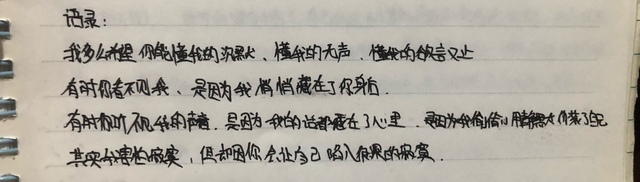 语录:
我多么希望你能懂我的沉默、懂我的无声、懂我的欲言又止
有时你看不见我、是因为我悄悄藏在了你身后.
有时你听不见我的声音、是因为我的话都藏在了心里.是因为我偷偷用沉默伪装了自己
其实我害怕寂寞、但却因你会让自己陷入很黑的寂寞.